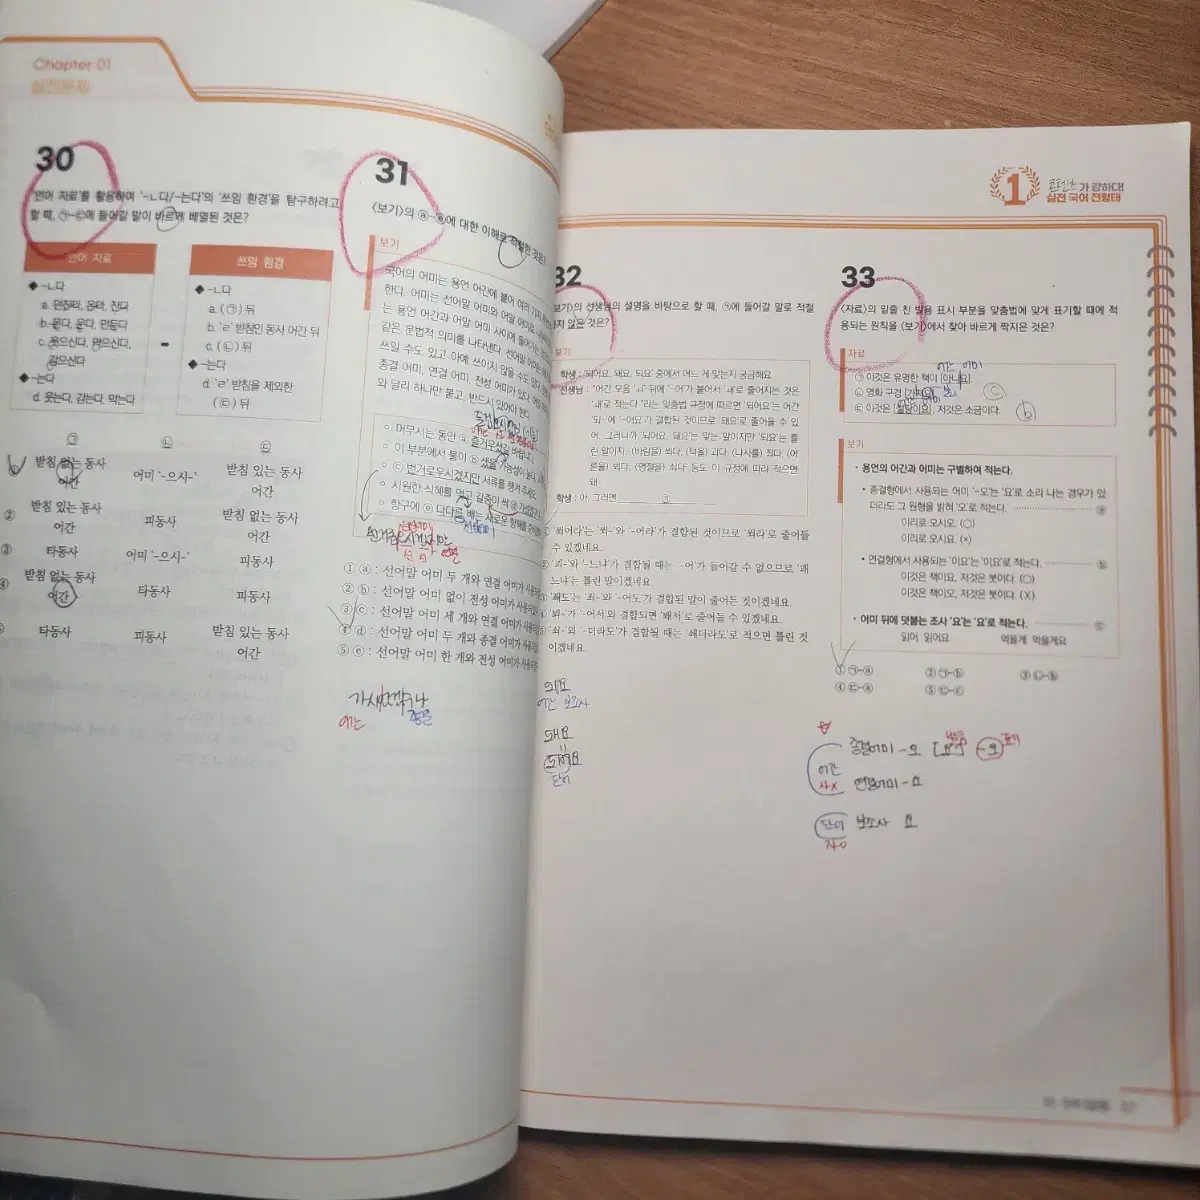 Chapter 01
실전문제
30
'언어 자료'를 활용하여 '-ㄴ다/-는다'의 '쓰임 환경'을 탐구하려고
할 때, ㉠~㉢에 들어갈 말이 바르게 배열된 것은?
언어 자료
◆ -ㄴ다
a. 던진다, 온다, 잔다
b. 문다, 운다, 만든다
c. 웃으신다, 맺으신다,
감으신다
◆ -는다
d. 웃는다, 감는다, 막는다
쓰임 환경
◆ -ㄴ다
a. ( ㉠ ) 뒤
b. 'ㄹ' 받침인 동사 어간 뒤
c. ( ㉡ ) 뒤
◆ -는다
d. 'ㄹ' 받침을 제외한
( ㉢ ) 뒤
㉠ ㉡ ㉢
받침 없는 동사 어간 어미 '-으시-' 받침 있는 동사 어간
② 받침 있는 동사 어간 피동사 받침 없는 동사 어간
③ 타동사 어미 '-으시-' 피동사
④ 받침 없는 동사 어간 타동사 피동사
타동사 피동사 받침 있는 동사 어간
31
<보기>의 ⓐ~ⓔ에 대한 이해로 적절한 것은?
보기
국어의 어미는 용언 어간에 붙어 여러 가지
한다. 어미는 선어말 어미와 어말 어미로
는 용언 어간과 어말 어미 사이에 들어가는
같은 문법적 의미를 나타낸다. 선어말 어미는
쓰일 수도 있고 아예 쓰이지 않을 수도 있다.
종결 어미, 연결 어미, 전성 어미가 있다.
와 달리 하나만 붙고, 반드시 있어야 한다.
○ 머무시는 동안 ⓐ 즐거우셨길 바랍니다.
○ 이 부분에서 물이 ⓑ 샜을 가능성이 높다.
○ ⓒ 번거로우시겠지만 서류를 챙겨 주세요.
○ 시원한 식혜를 먹고 갈증이 싹 ⓓ 가셨겠구나.
○ 항구에 ⓔ 다다른 배는 새로운 항해를
① ⓐ : 선어말 어미 두 개와 연결 어미가
② ⓑ : 선어말 어미 없이 전성 어미가
③ ⓒ : 선어말 어미 세 개와 연결 어미가
④ ⓓ : 선어말 어미 두 개와 종결 어미가
⑤ ⓔ : 선어말 어미 한 개와 전성 어미가
어간
종결
1
가 강하다!
실전 국어 전형태
32
보기>의 선생님의 설명을 바탕으로 할 때, ㉠에 들어갈 말로 적절
하지 않은 것은?
보기
학생 : '되어요, 돼요, 되요' 중에서 어느 게 맞는지 궁금해요.
선생님 : "어간 모음 'ㅚ' 뒤에 '-어'가 붙어서 'ㅙ'로 줄어지는 것은
'ㅙ'로 적는다."라는 맞춤법 규정에 따르면 '되어요'는 어간
'되-'에 '-어요'가 결합된 것이므로 '돼요'로 줄어들 수 있
어. 그러니까 '되어요, 돼요'는 맞는 말이지만 '되요'는 틀
린 말이지. (바람을) 쐬다, (턱을) 괴다, (나사를) 죄다, (어
른을) 뵈다, (명절을) 쇠다 등도 이 규정에 따라 적으면
돼.
학생 : 아, 그러면 ㉠
① '쐬어라'는 '쐬-'와 '-어라'가 결합된 것이므로 '쐐라'로 줄어들
수 있겠네요.
② '괴-'가 '-느냐'와 결합될 때는 '-어'가 들어갈 수 없으므로 '괘
느냐'는 틀린 말이겠네요.
③ '좨도'는 '죄-'와 '-어도'가 결합된 말이 줄어든 것이겠네요.
④ '뵈-'가 '-어서'와 결합되면 '봬서'로 줄어들 수 있겠네요.
⑤ '쇠-'와 '-더라도'가 결합될 때는 '쇄더라도'로 적으면 틀린 것
이겠네요.
되요
어간 보조사
돼요
되어요
단어
33
<자료>의 밑줄 친 발음 표시 부분을 맞춤법에 맞게 표기할 때에 적
용되는 원칙을 <보기>에서 찾아 바르게 짝지은 것은?
자료
어간 어미
㉠ 이것은 유명한 책이 [아니요].
㉡ 영화 구경 [가지요].
㉢ 이것은 [설탕이요], 저것은 소금이다.
ⓒ
ⓑ
보기
• 용언의 어간과 어미는 구별하여 적는다.
• 종결형에서 사용되는 어미 '-오'는 '요'로 소리 나는 경우가 있
더라도 그 원형을 밝혀 '오'로 적는다. ⓐ
이리로 오시오. (○)
이리로 오시요. (×)
• 연결형에서 사용되는 '이요'는 '이요'로 적는다. ⓑ
이것은 책이요, 저것은 붓이다. (○)
이것은 책이오, 저것은 붓이다. (×)
• 어미 뒤에 덧붙는 조사 '요'는 '요'로 적는다. ⓒ
읽어 읽어요 먹을게 먹을게요
① ㉠-ⓐ ② ㉠-ⓑ ③ ㉡-ⓑ
④ ㉢-ⓐ ⑤ ㉢-ⓒ
종결어미 -오 [요] -오
어간
사×
연결어미 -요
단어 보조사 요